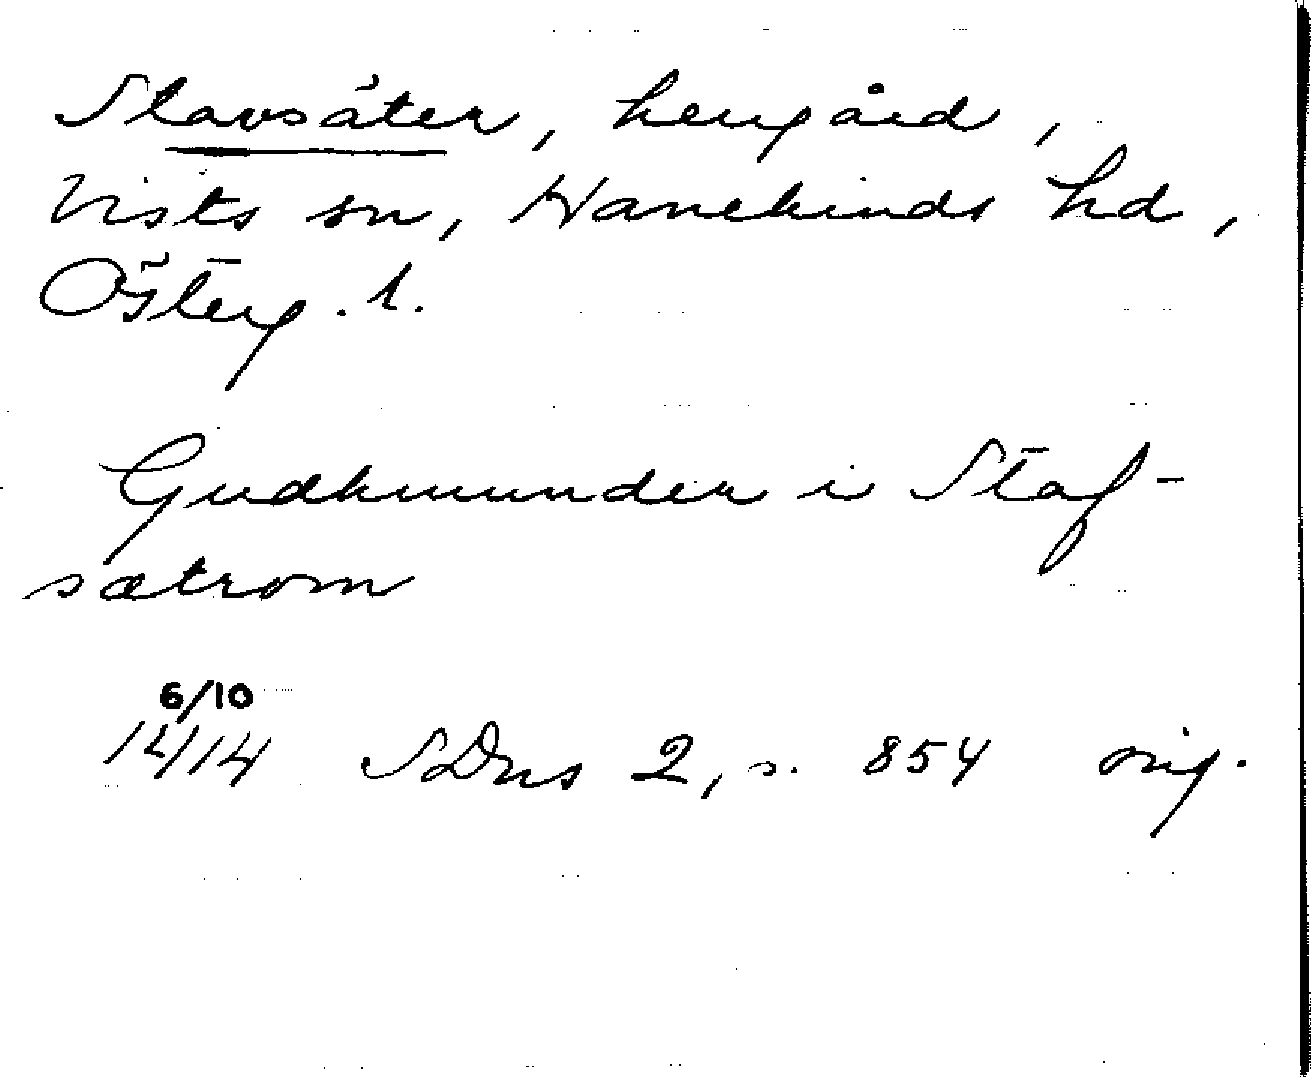 Stavsäter, herrgård,
Vists sn, Hanekinds hd,
Österg. l.
Gudhmunder i Staf-
sætrom
6/10
1414 SDns 2, s. 854 orig.